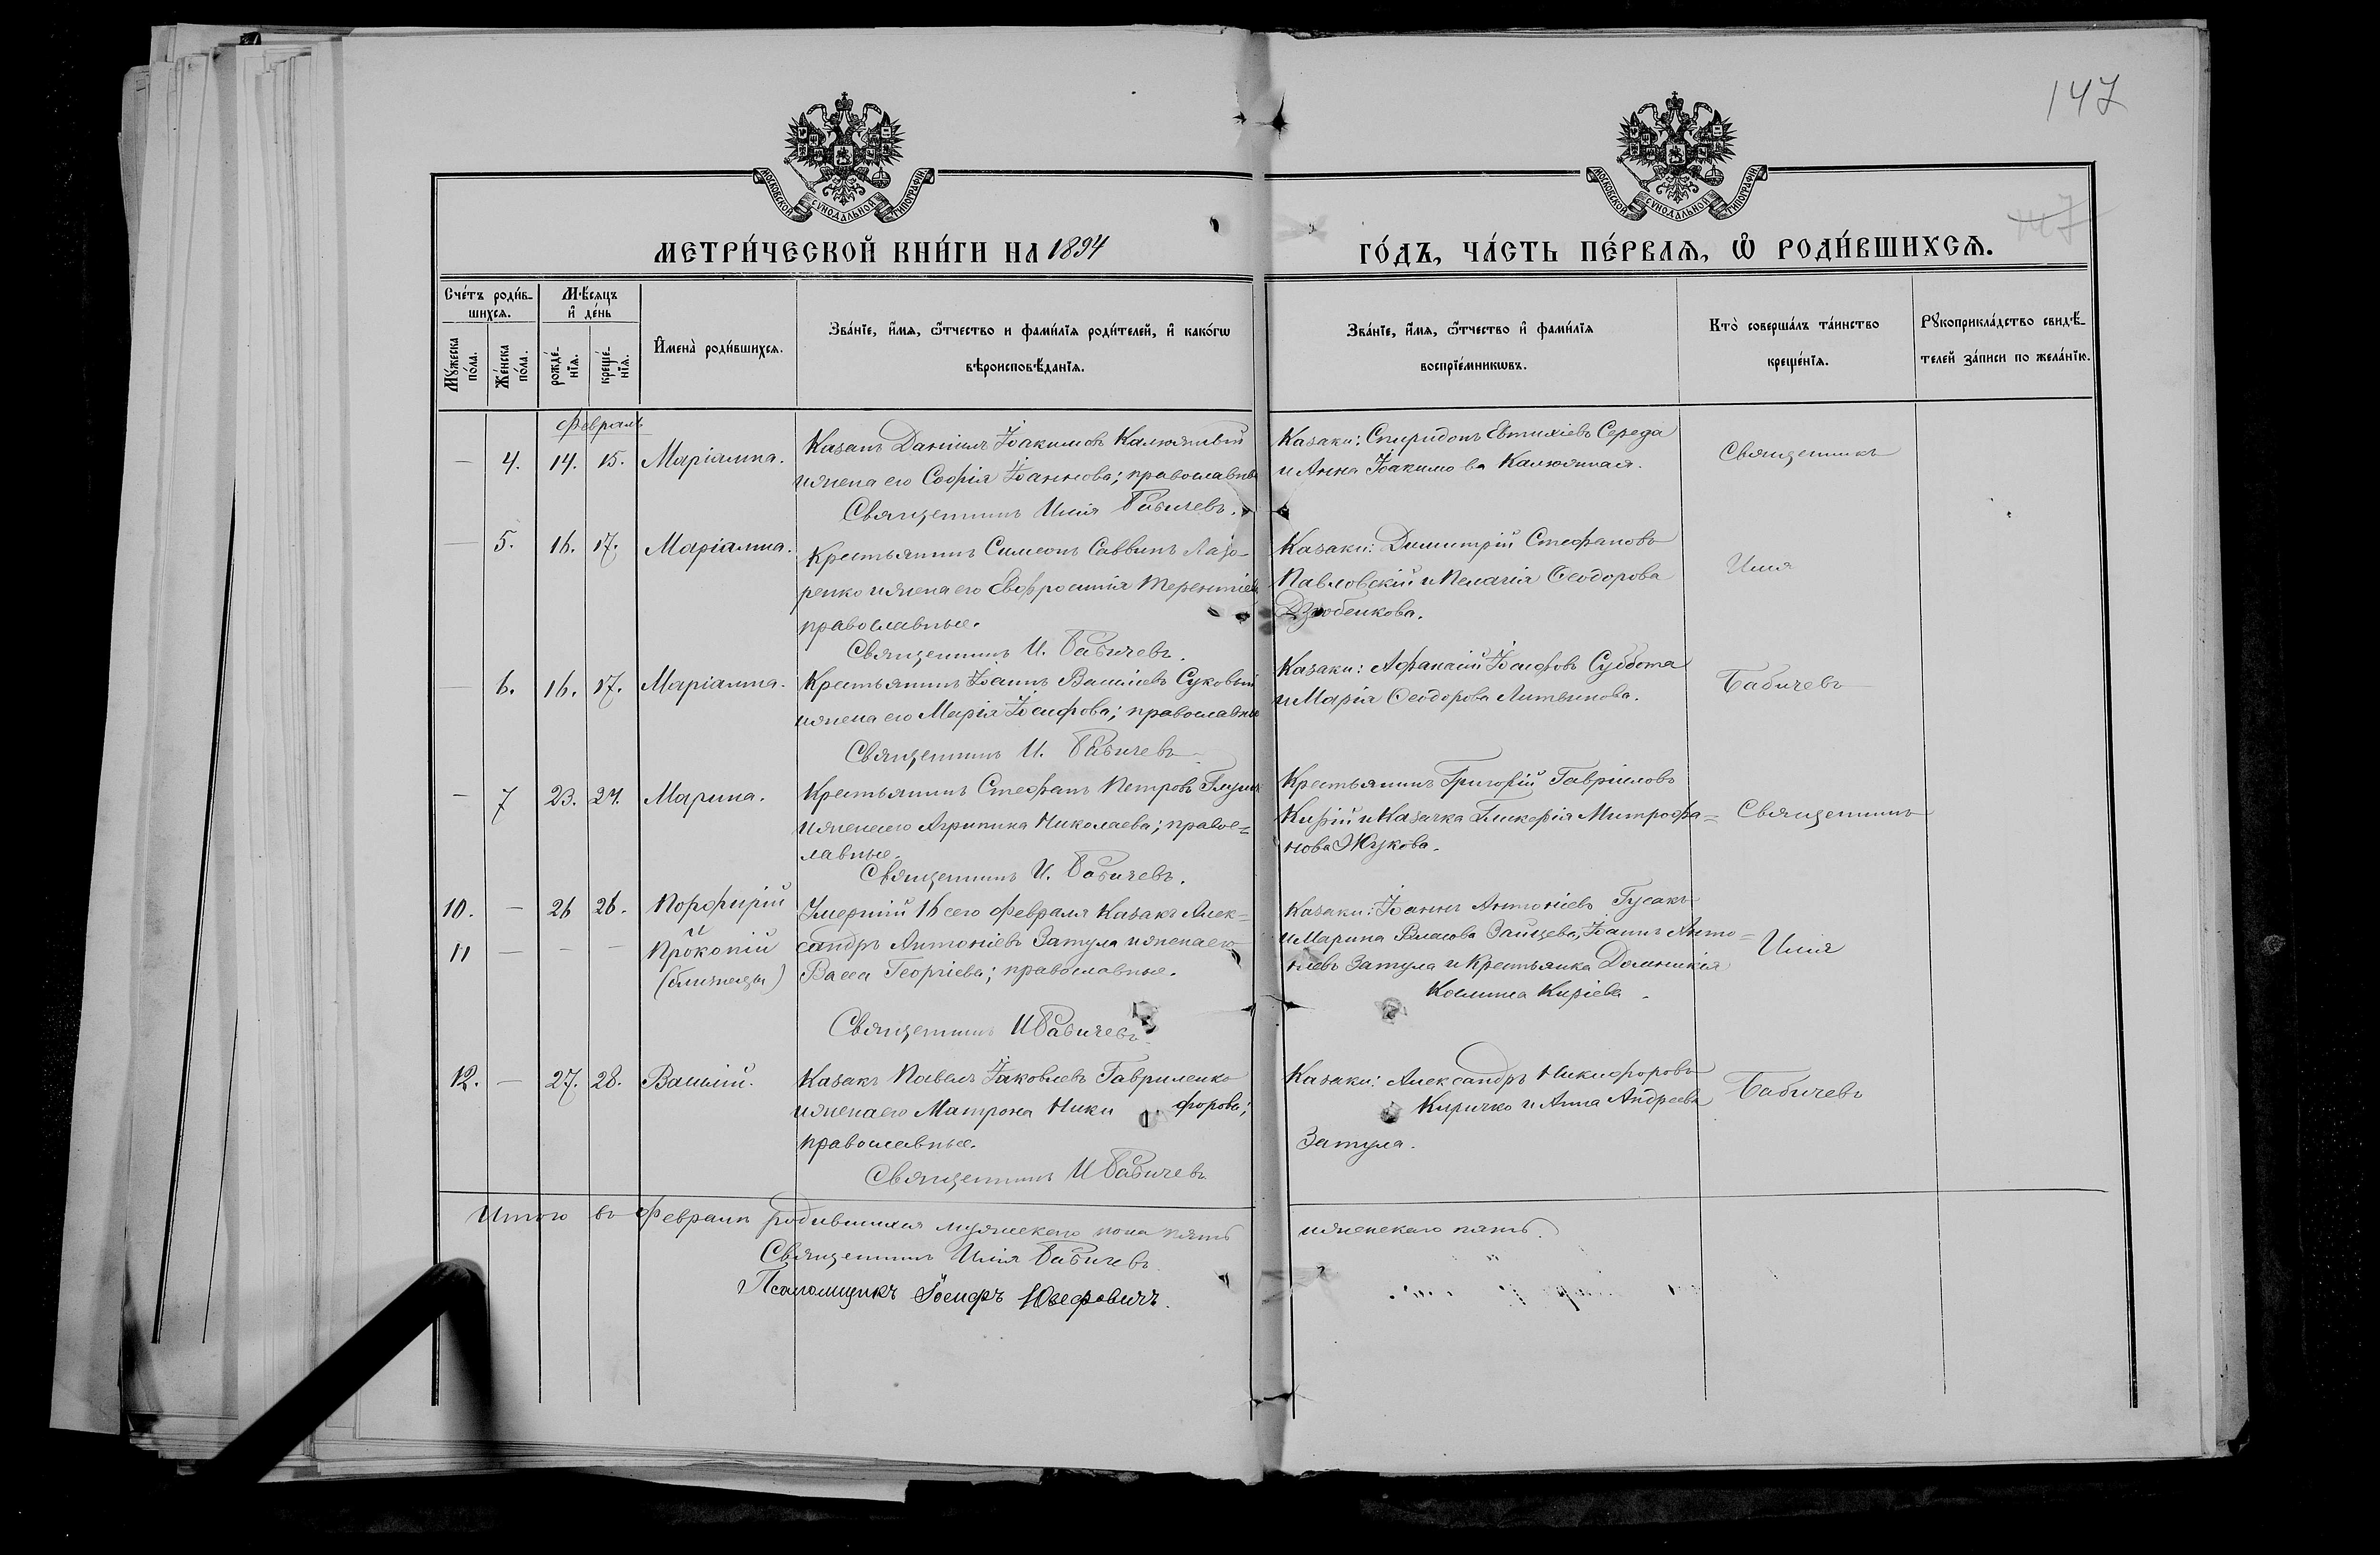 147
МОСКОВСКОЙ СУНОДАЛЬНОЙ ТИПОГРАФІИ
МОСКОВСКОЙ СУНОДАЛЬНОЙ ТИПОГРАФІИ
МЕТРИ́ЧЕСКОЙ КНИ́ГИ НА 1894
ГО́ДЪ, ЧА́СТЬ ПЕ́РВАѦ, Ѡ РОДИ́ВШИХСѦ.
Сче́тъ роди́в-
шихсѧ.
Мѣ́сѧцъ
и҆ де́нь
Мꙋ́жеска по́ла.
Же́нска по́ла.
рожде́-
нїѧ.
креще́-
нїѧ.
И҆мена̀ роди́вшихсѧ.
Зва́нїе, и҆́мѧ, ѻ҆́тчество и фами́лїѧ роди́телей, и҆ како́гѡ
вѣроисповѣ́данїѧ.
Зва́нїе, и҆́мѧ, ѻ҆́тчество и҆ фами́лїѧ
воспрїе́мникѡвъ.
Кто̀ соверша́лъ та́инство
креще́нїѧ.
Рꙋкоприкла́дство свидѣ́-
телей за́писи по жела́нїю.
Февраль
— 4. 14. 15. Маріанна.
Казакъ Даніилъ Іоакимовъ Калюжный
и жена его Софія Іоаннова; православные
Священникъ Илія Бабичевъ.
Казаки: Спиридонъ Евтихіевъ Середа
и Анна Іоакимова Калюжная.
Священникъ
— 5. 16. 17. Маріанна.
Крестьянинъ Симеонъ Саввинъ Лаза-
ренко и жена его Евфросинія Терентіева
православные.
Священникъ И. Бабичевъ.
Казаки: Димитрій Стефановъ
Павловскій и Пелагія Ѳеодорова
Дзюбенкова.
Илія
— 6. 16. 17. Маріанна.
Крестьянинъ Іоаннъ Василіевъ Суковый
и жена его Марія Іосифова; православные
Священникъ И. Бабичевъ
Казаки: Афанасій Іосифовъ Суббота
и Марія Ѳеодорова Литвинова.
Бабичевъ
— 7 23. 24. Марина.
Крестьянинъ Стефанъ Петровъ
и жена его Агрипина Николаева; право=
лавные.
Священникъ И. Бабичевъ.
Крестьянинъ Григорій Гавріиловъ
Кирій и Казачка Гликерія Митрофа=
нова Жукова.
Священникъ
10. — 26 26. Порфирій
11 — — — Прокопій
(близнецы)
Умершій 16 сего февраля Казакъ Алек=
сандръ Антоніевъ Затула и жена его
Васса Георгіева; православные.
Священникъ И Бабичевъ.
Казаки: Іоаннъ Антоніевъ Гусакъ
и Марина Власова Зайцева, Іоаннъ Анто=
ніевъ Затула и Крестьянка Домникія
Космина Киріева.
Илія
12. — 27. 28. Василій.
Казакъ Павелъ Іаковлевъ Гавриленко
и жена его Матрона Ники форова;
православные.
Священникъ И Бабичевъ
Казаки: Александръ Никифоровъ
Киричко и Анна Андреева
Затула.
Бабичевъ
Итого въ Февралѣ родившихся мужескаго пола пять
и женскаго пять.
Священникъ Илія Бабичевъ.
Псаломщикъ Іосифъ Юзефовичъ.